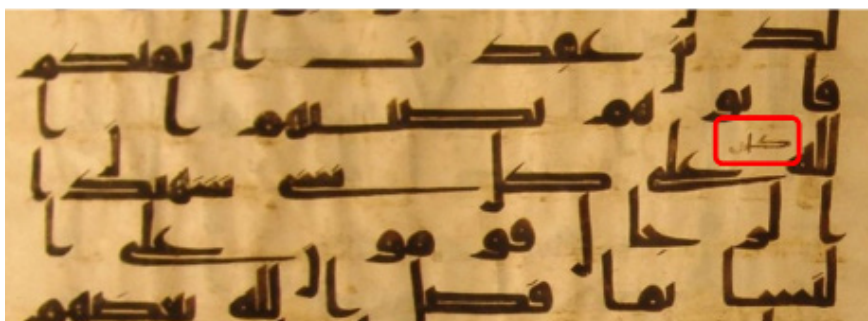 لذين عقدت ايمنكم
فاتوهم نصيبهم ان ا
لله كان على كل شى شهيدا
الرجال قومون على ا
لنسا بما فضل الله بعضهم